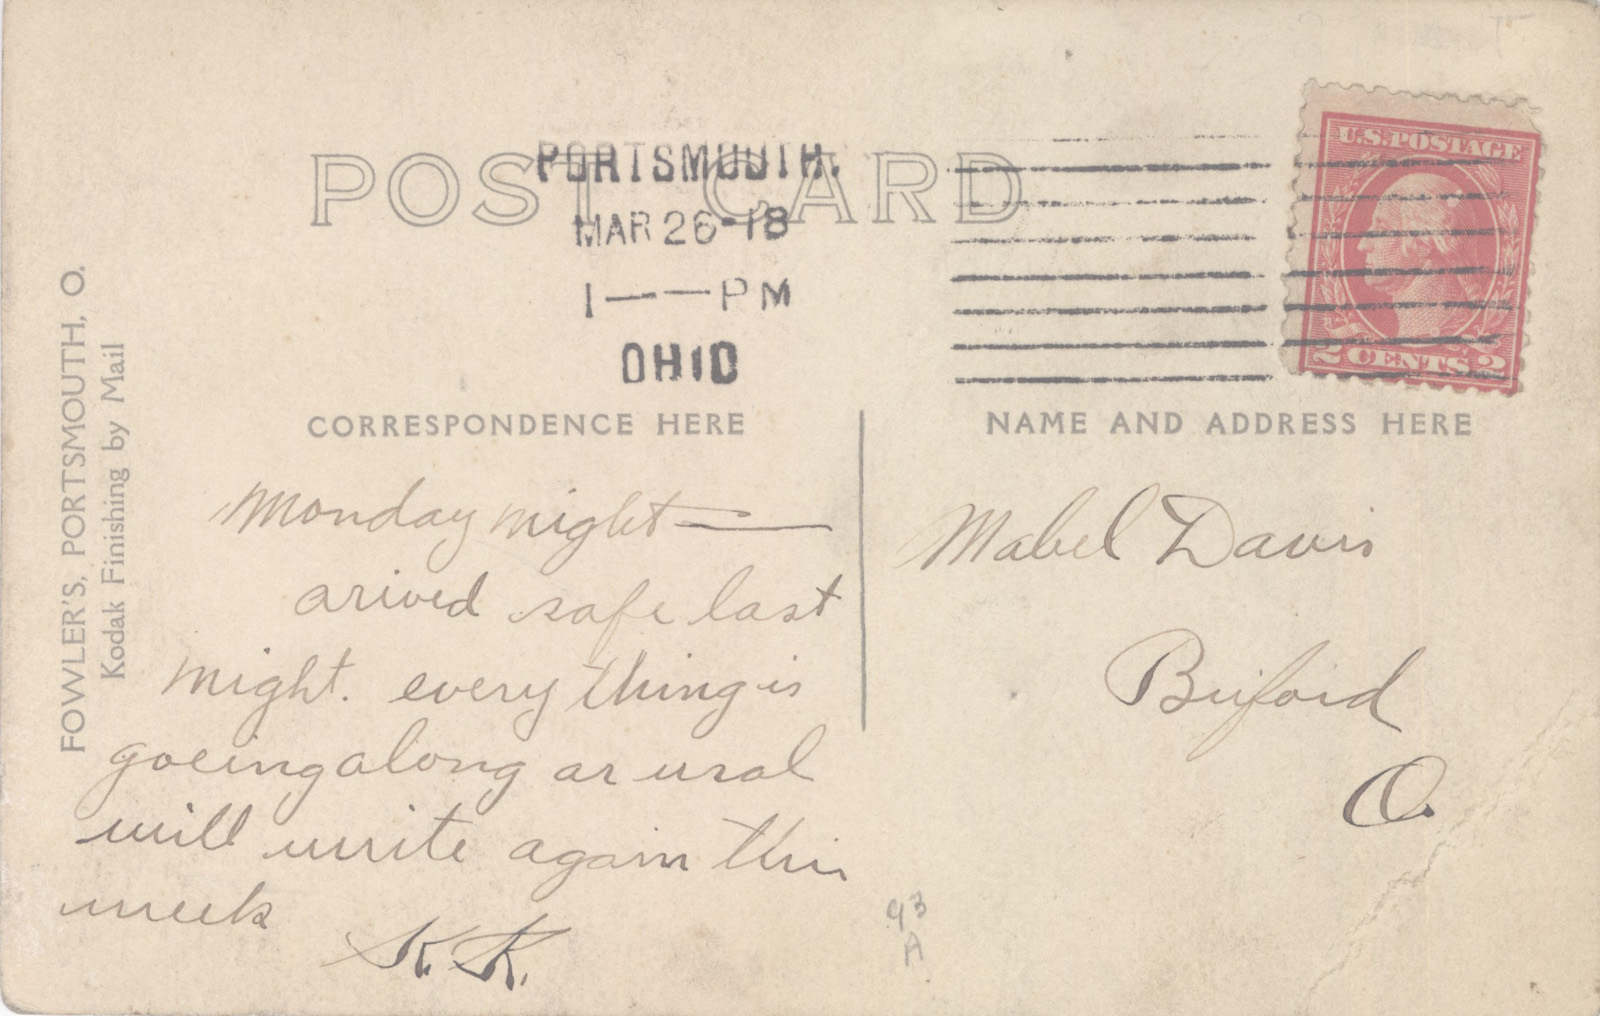 POST CARD
PORTSMOUTH,
MAR 26-18
1 — — PM
OHIO
U.S. POSTAGE
2 CENTS 2
FOWLER'S, PORTSMOUTH, O.
Kodak Finishing by Mail
CORRESPONDENCE HERE
Monday night —
arived safe last
night. every thing is
goeing along as usal
will write again this
week
K. K.
NAME AND ADDRESS HERE
Mabel Davis
Buford
O.
93
A